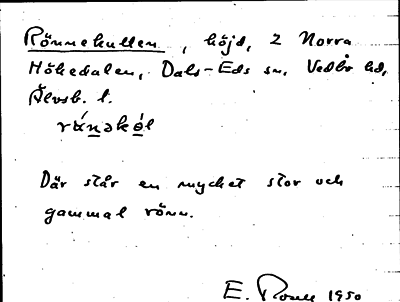 Rönnekullen, höjd, 2 Norra
Hökedalen, Dals-Eds sn, Vedbo hd,
Älvsb. l.
ránəkə́l
Där står en mycket stor och
gammal rönn.
E. 1950